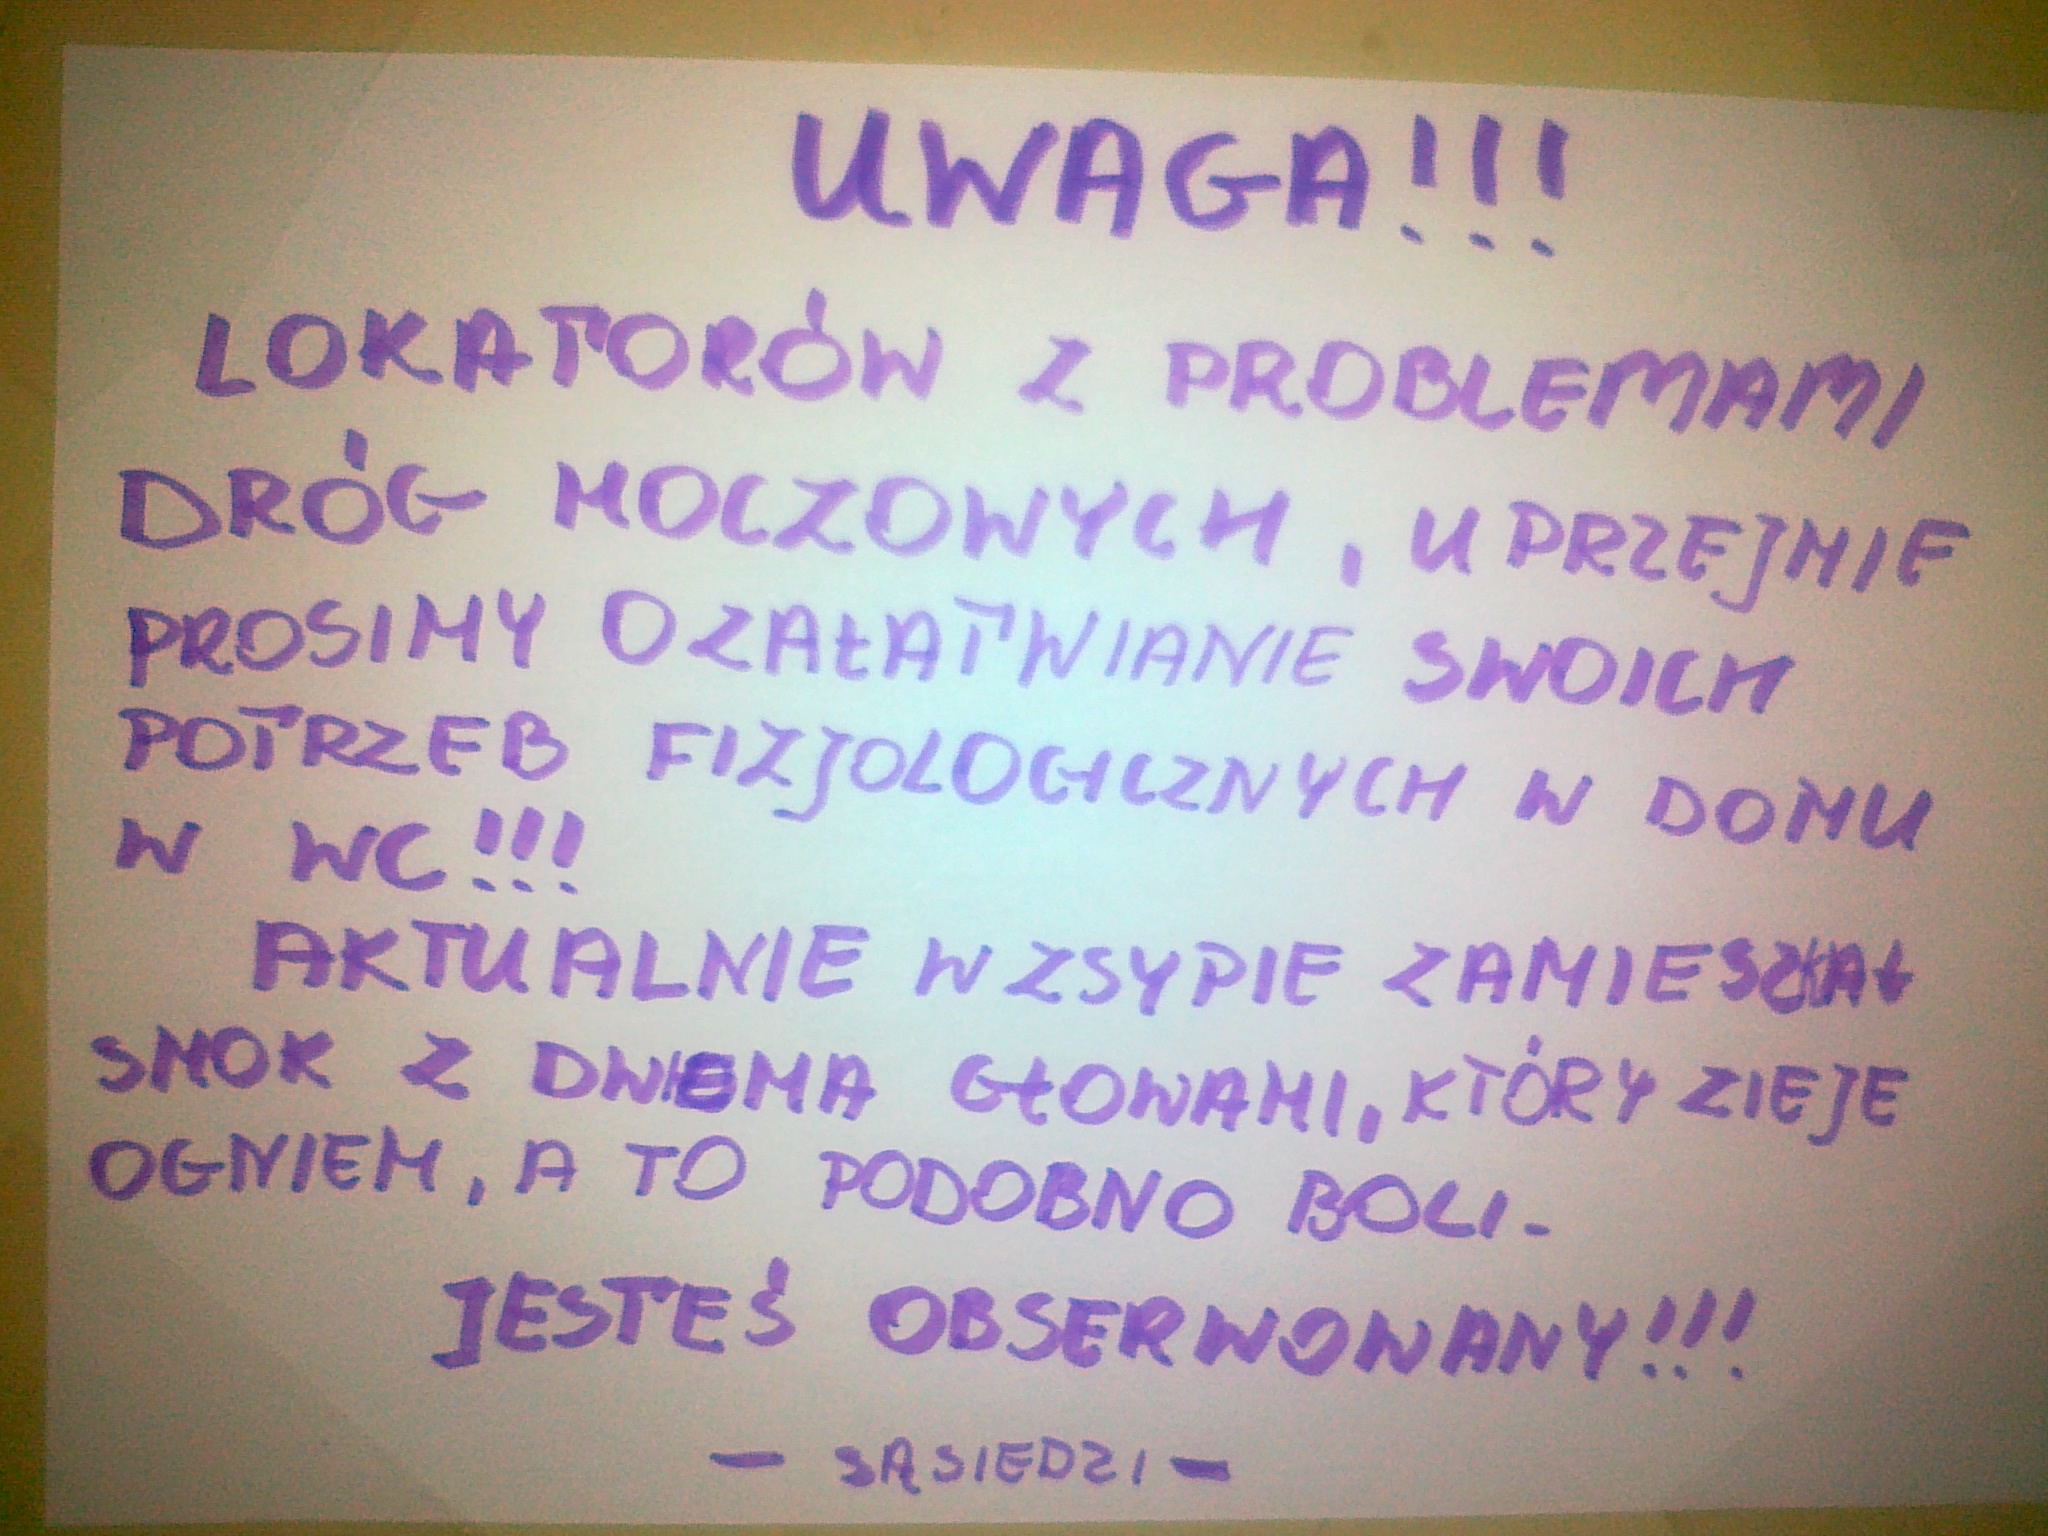 UWAGA!!!
LOKATORÓW Z PROBLEMAMI
DRÓG MOCZOWYCH, UPRZEJMIE
PROSIMY O ZAŁATWIANIE SWOICH
POTRZEB FIZJOLOGICZNYCH W DOMU
W WC!!!
AKTUALNIE W ZSYPIE ZAMIESZKAŁ
SMOK Z DWIEMA GŁOWAMI, KTÓRY ZIEJE
OGNIEM, A TO PODOBNO BOLI.
JESTEŚ OBSERWOWANY!!!
- SĄSIEDZI -